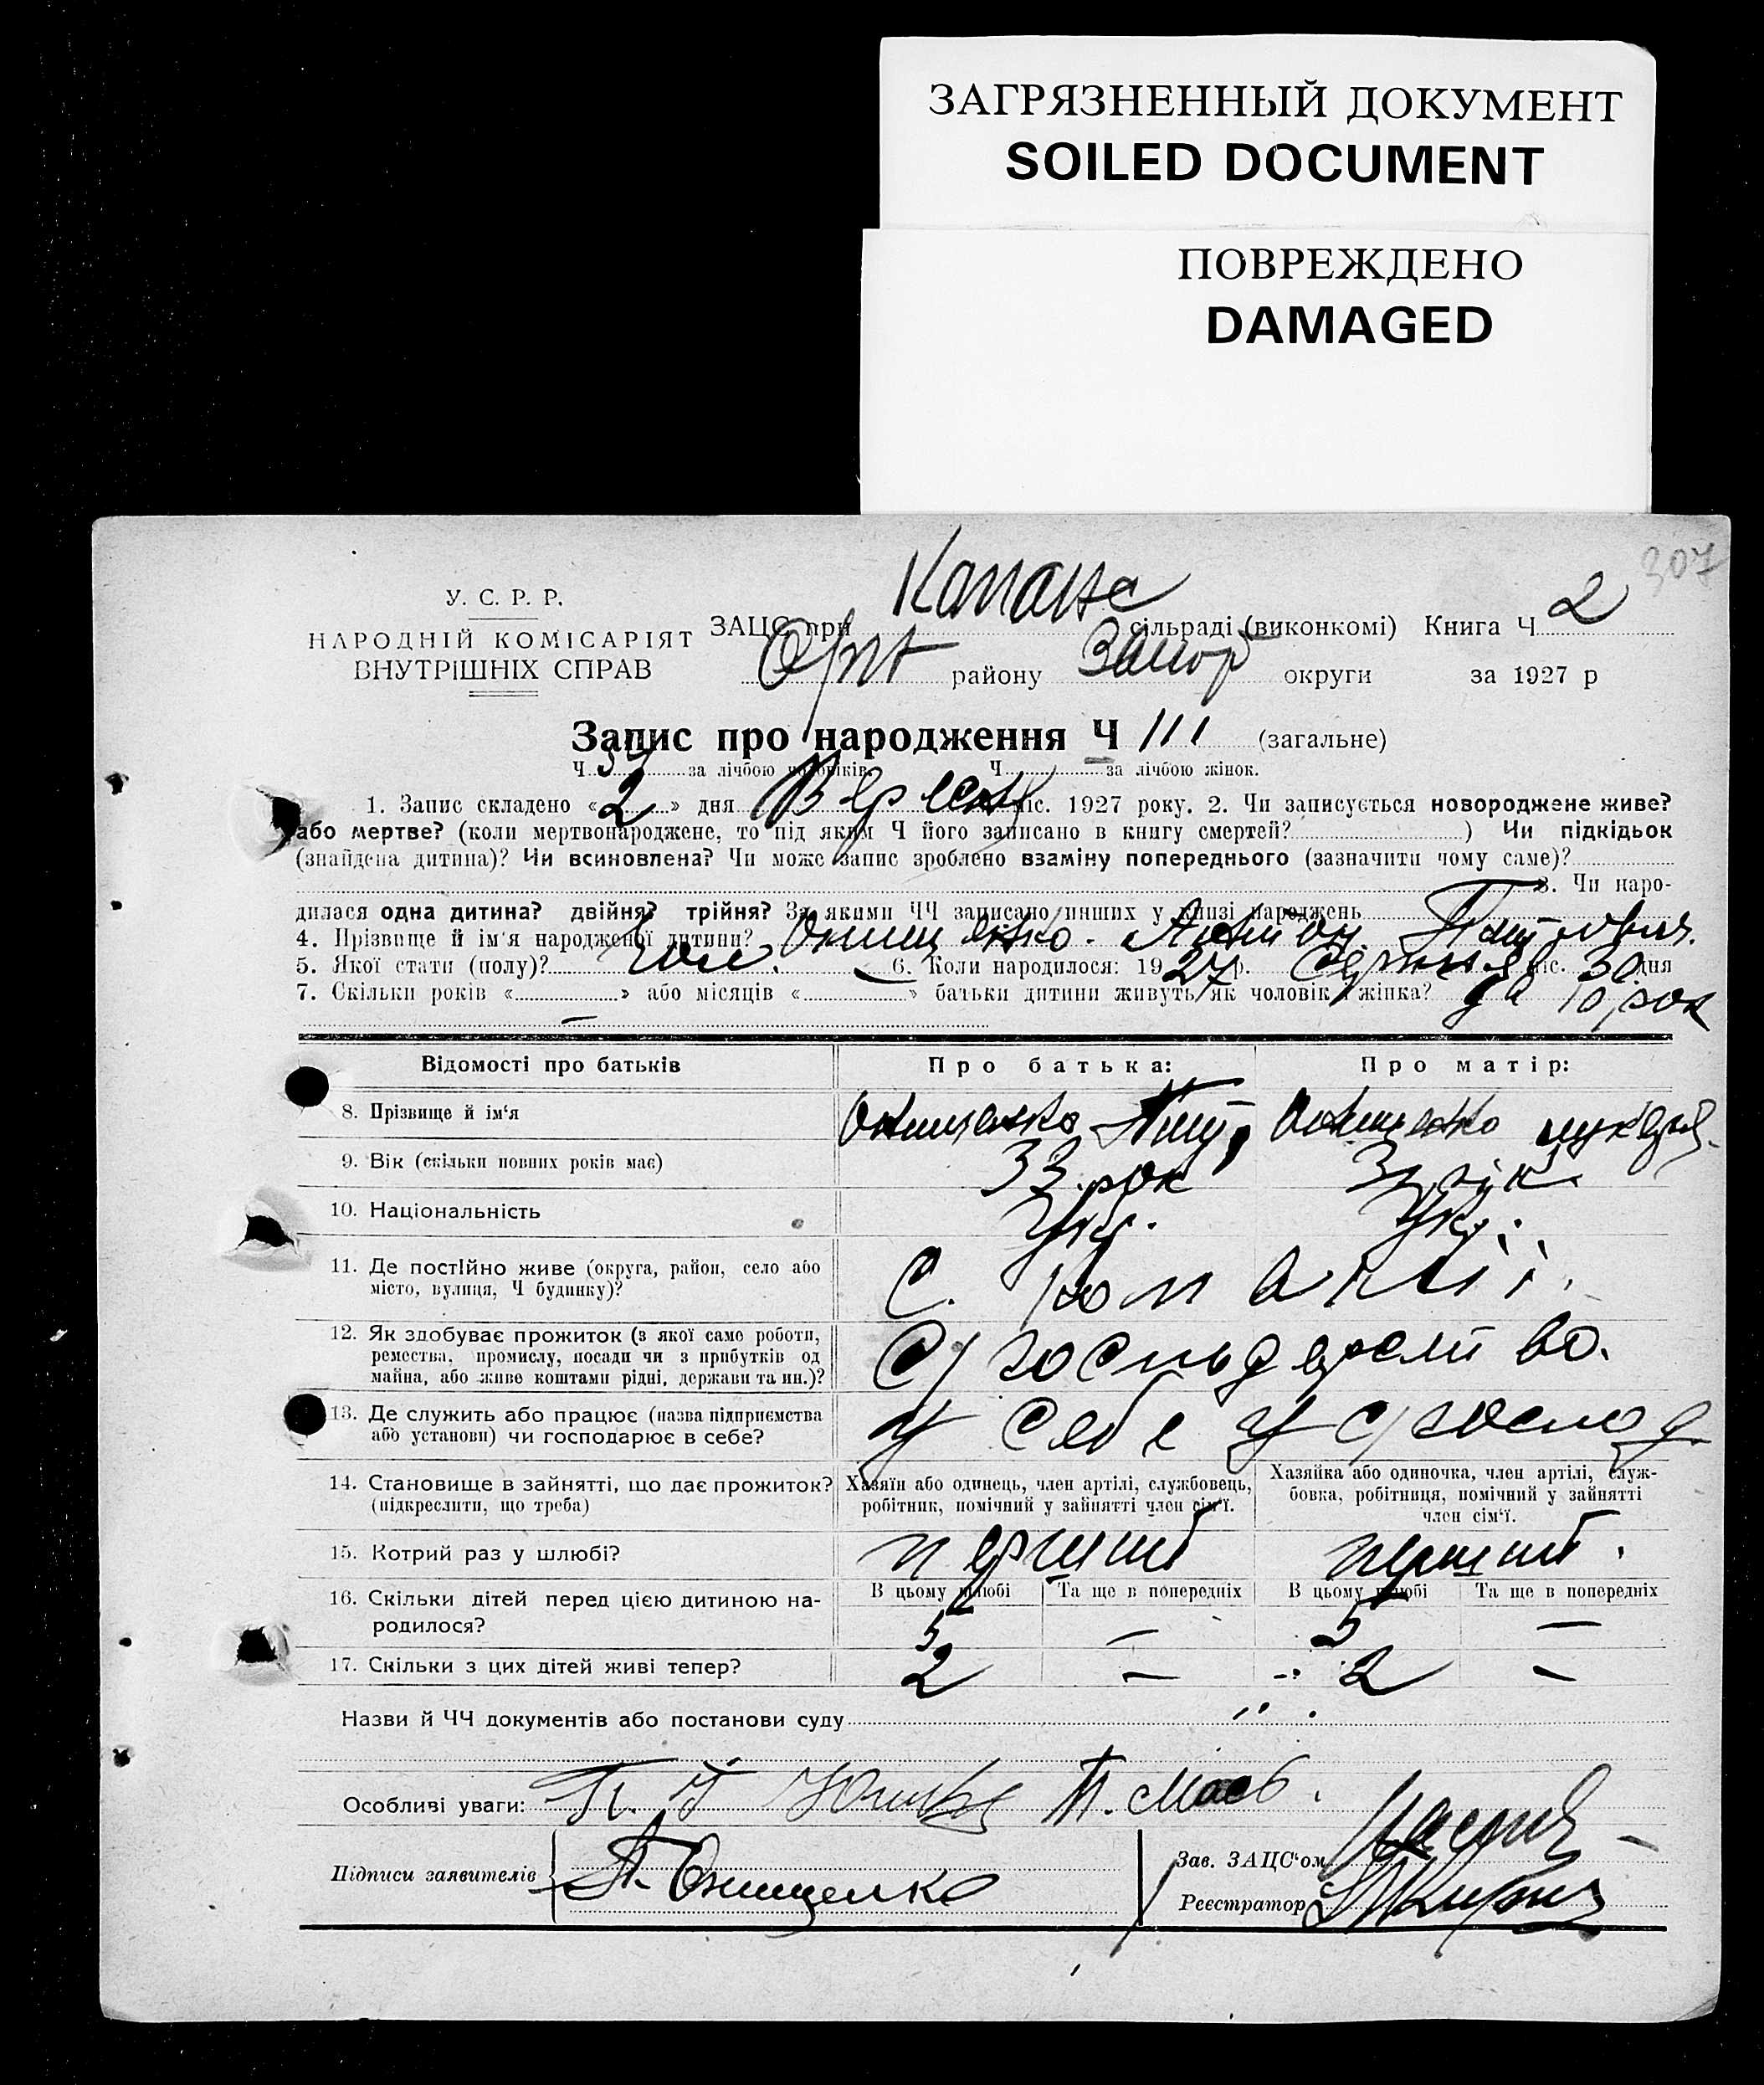 ЗАГРЯЗНЕННЫЙ ДОКУМЕНТ
SOILED DOCUMENT
ПОВРЕЖДЕНО
DAMAGED
307
У. С. Р. Р.
НАРОДНІЙ КОМІСАРІЯТ
ВНУТРІШНІХ СПРАВ
ЗАЦС при сільраді (виконкомі) Книга Ч 2
району Запор округи за 1927 р
Запис про народження Ч 111 (загальне)
Ч. за лічбою чоловіків Ч. за лічбою жінок.
1. Запис складено «2» дня Вересня міс. 1927 року. 2. Чи записується новороджене живе?
або мертве? (коли мертвонароджене, то під яким Ч його записано в книгу смертей? ) Чи підкідьок
(знайдена дитина)? Чи всиновлена? Чи може запис зроблено взаміну попереднього (зазначити чому саме)?
3. Чи наро-
дилася одна дитина? двійня? трійня? За якими ЧЧ записано инших у книзі народжень
4. Прізвище й ім'я народженої дитини? Онищенко Антон
5. Якої стати (полу)? Чол. 6. Коли народилося: 1927 р. Серпня міс. 30 дня
7. Скільки років « » або місяців « » батьки дитини живуть як чоловік і жінка? да 10 рок
Відомості про батьків Про батька: Про матір:
8. Прізвище й ім'я Онищенко Онищенко
9. Вік (скільки повних років має) 33 рок
10. Національність Укр. Укр.
11. Де постійно живе (округа, район, село або
місто, вулиця, Ч будинку)? с.
12. Як здобуває прожиток (з якої само роботи,
ремества, промислу, посади чи з прибутків од
майна, або живе коштами рідні, держави та ин.)? С/господарство.
13. Де служить або працює (назва підприємства
або установи) чи господарює в себе? у себе у с/господ
14. Становище в зайнятті, що дає прожиток?
(підкреслити, що треба)
Хазяїн або одинець, член артілі, службовець,
робітник, помічний у зайнятті член сім'ї.
Хазяйка або одиночка, член артілі, служ-
бовка, робітниця, помічний у зайнятті
член сім'ї.
15. Котрий раз у шлюбі? перший перший.
В цьому шлюбі Та ще в попередніх В цьому шлюбі Та ще в попередніх
16. Скільки дітей перед цією дитиною на-
родилося? 5 — 5 —
17. Скільки з цих дітей живі тепер? 2 — 2 —
Назви й ЧЧ документів або постанови суду
Особливі уваги:
Підписи заявителів П. Онищенко
Зав. ЗАЦС'ом
Реєстратор